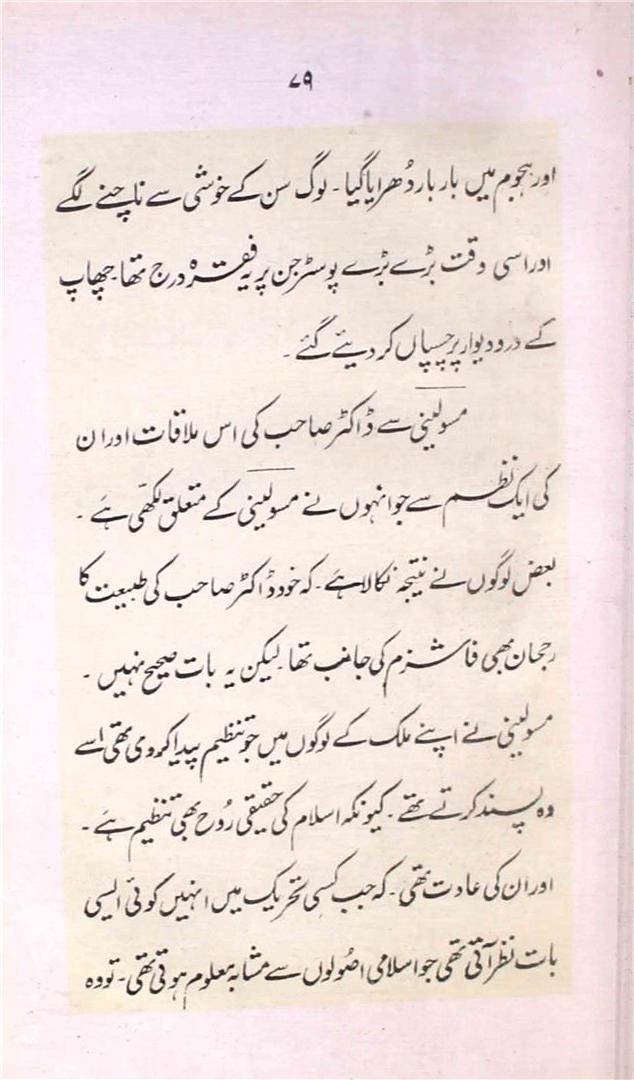 ۷۹
اور ہجوم میں بار بار دُھرایا گیا ۔ لوگ سن کے خوشی سے ناچنے لگے
اور اسی وقت بڑے بڑے پوسٹر جن پر یہ فقرہ درج تھا ۔ چھاپ
کے در و دیوار پر چسپاں کر دیئے گئے ۔
مسولینی سے ڈاکٹر صاحب کی اس ملاقات اور ان
کی ایک نظم سے جو انہوں نے مسولینی کے متعلق لکھی ہے ۔
بعض لوگوں نے نتیجہ نکالا ہے ۔ کہ خود ڈاکٹر صاحب کی طبیعت کا
رجحان بھی فاشزم کی جانب تھا ۔ لیکن یہ بات صحیح نہیں ۔
مسولینی نے اپنے ملک کے لوگوں میں جو تنظیم پیدا کر دی تھی اسے
وہ پسند کرتے تھے ۔ کیونکہ اسلام کی حقیقی رُوح بھی تنظیم ہے ۔
اور ان کی عادت تھی ۔ کہ جب کسی تحریک میں انہیں کوئی ایسی
بات نظر آتی تھی جو اسلامی اصُولوں سے مشابہ معلوم ہوتی تھی ۔ تو وہ